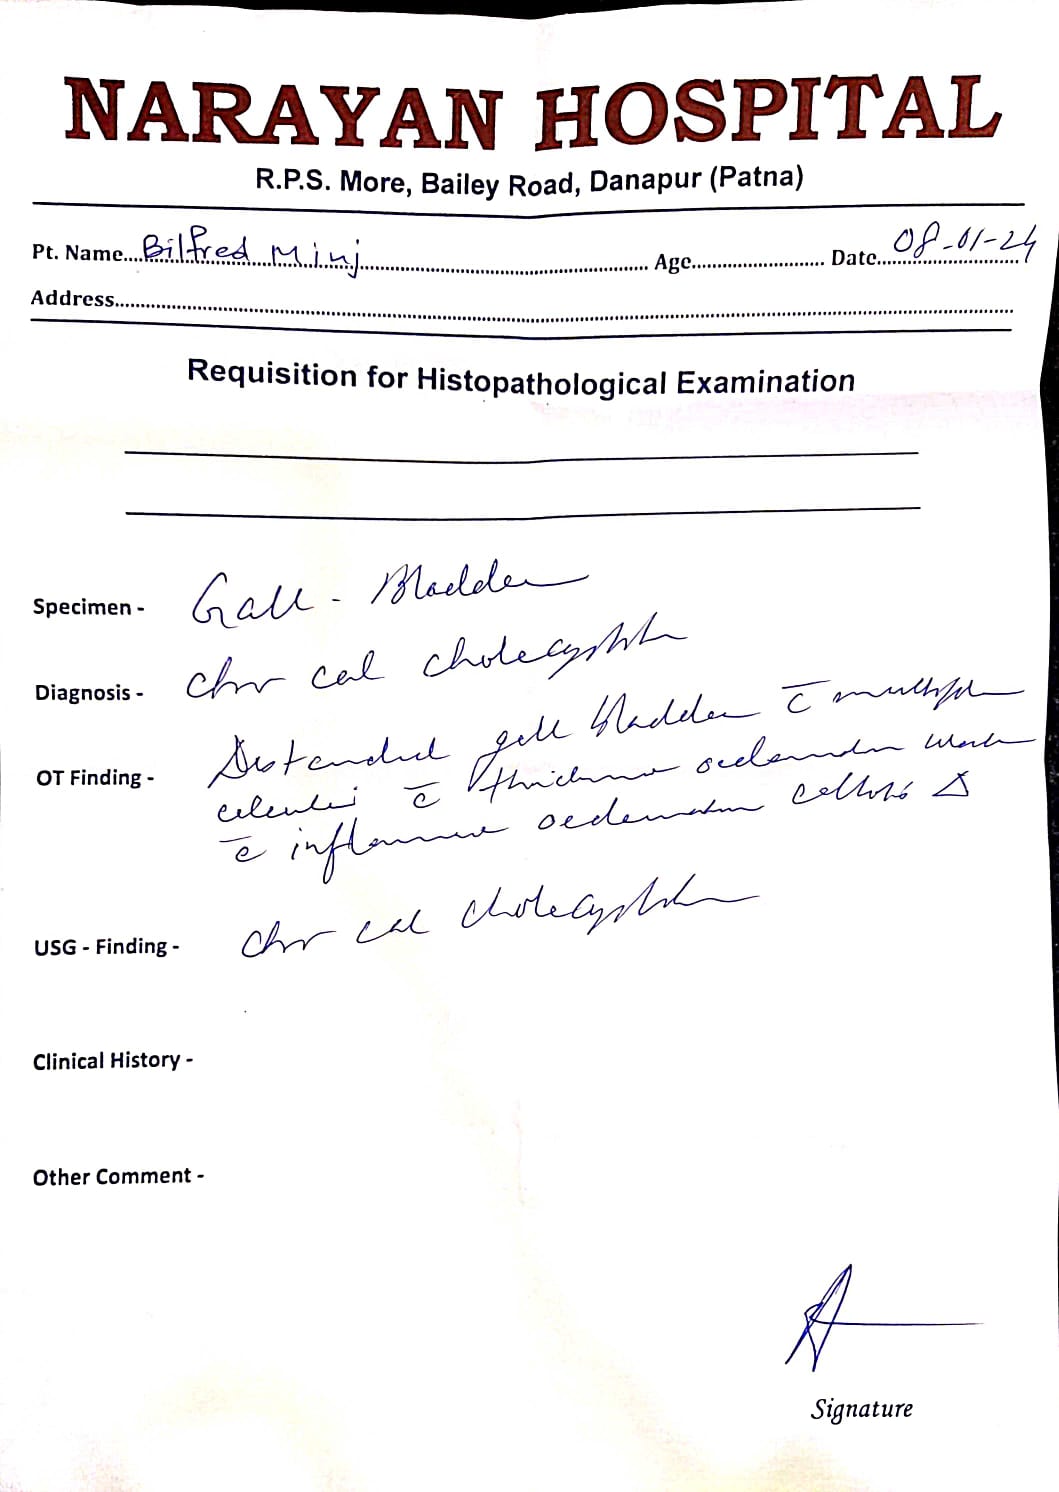 NARAYAN HOSPITAL
R.P.S. More, Bailey Road, Danapur (Patna)
Pt. Name....Bilfred Minj.... Age.... Date....08-01-24
Address....
Requisition for Histopathological Examination
Specimen - Gall - Bladder
Diagnosis - Chr cal cholecystitis
OT Finding - Distended gall bladder c̄ multiple
calculi c̄ oedematous
c̄ oedematous callots Δ
USG - Finding - Chr cal cholecystitis
Clinical History -
Other Comment -
Signature